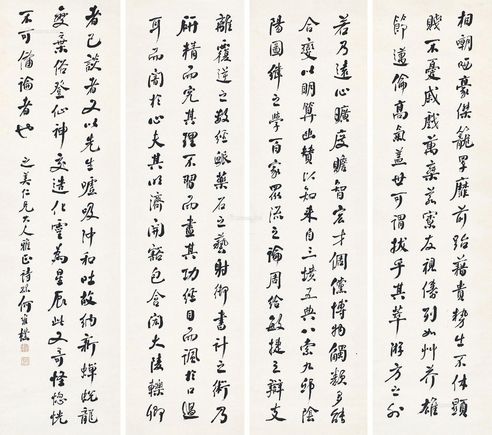 相嘲哂豪傑籠罩靡前跆藉貴勢生不休顯
賤不憂戚戲萬乘若寮友視儔列如艸芥雄
節邁倫高氣蓋世可謂拔乎其萃游方之外
若乃遠心曠度贍智宏才倜儻博物觸類多能
合變以明算幽贊以知來自三墳五典八索九邱陰
陽圖緯之學百家眾流之論周給敏捷之辯支
離覆逆之數經脈藥石之藝射御書計之術乃
研精而究其理不習而盡其功經目而諷於口過
耳而闇於心夫其明濟開豁包含閎大陵轢卿
者已談者又以先生噓吸沖和吐故納新蟬蛻龍
變棄俗登仙神交造化靈為星辰此又奇怪惚恍
不可備論者也 之美仁兄大人雅正詩孫何維樸